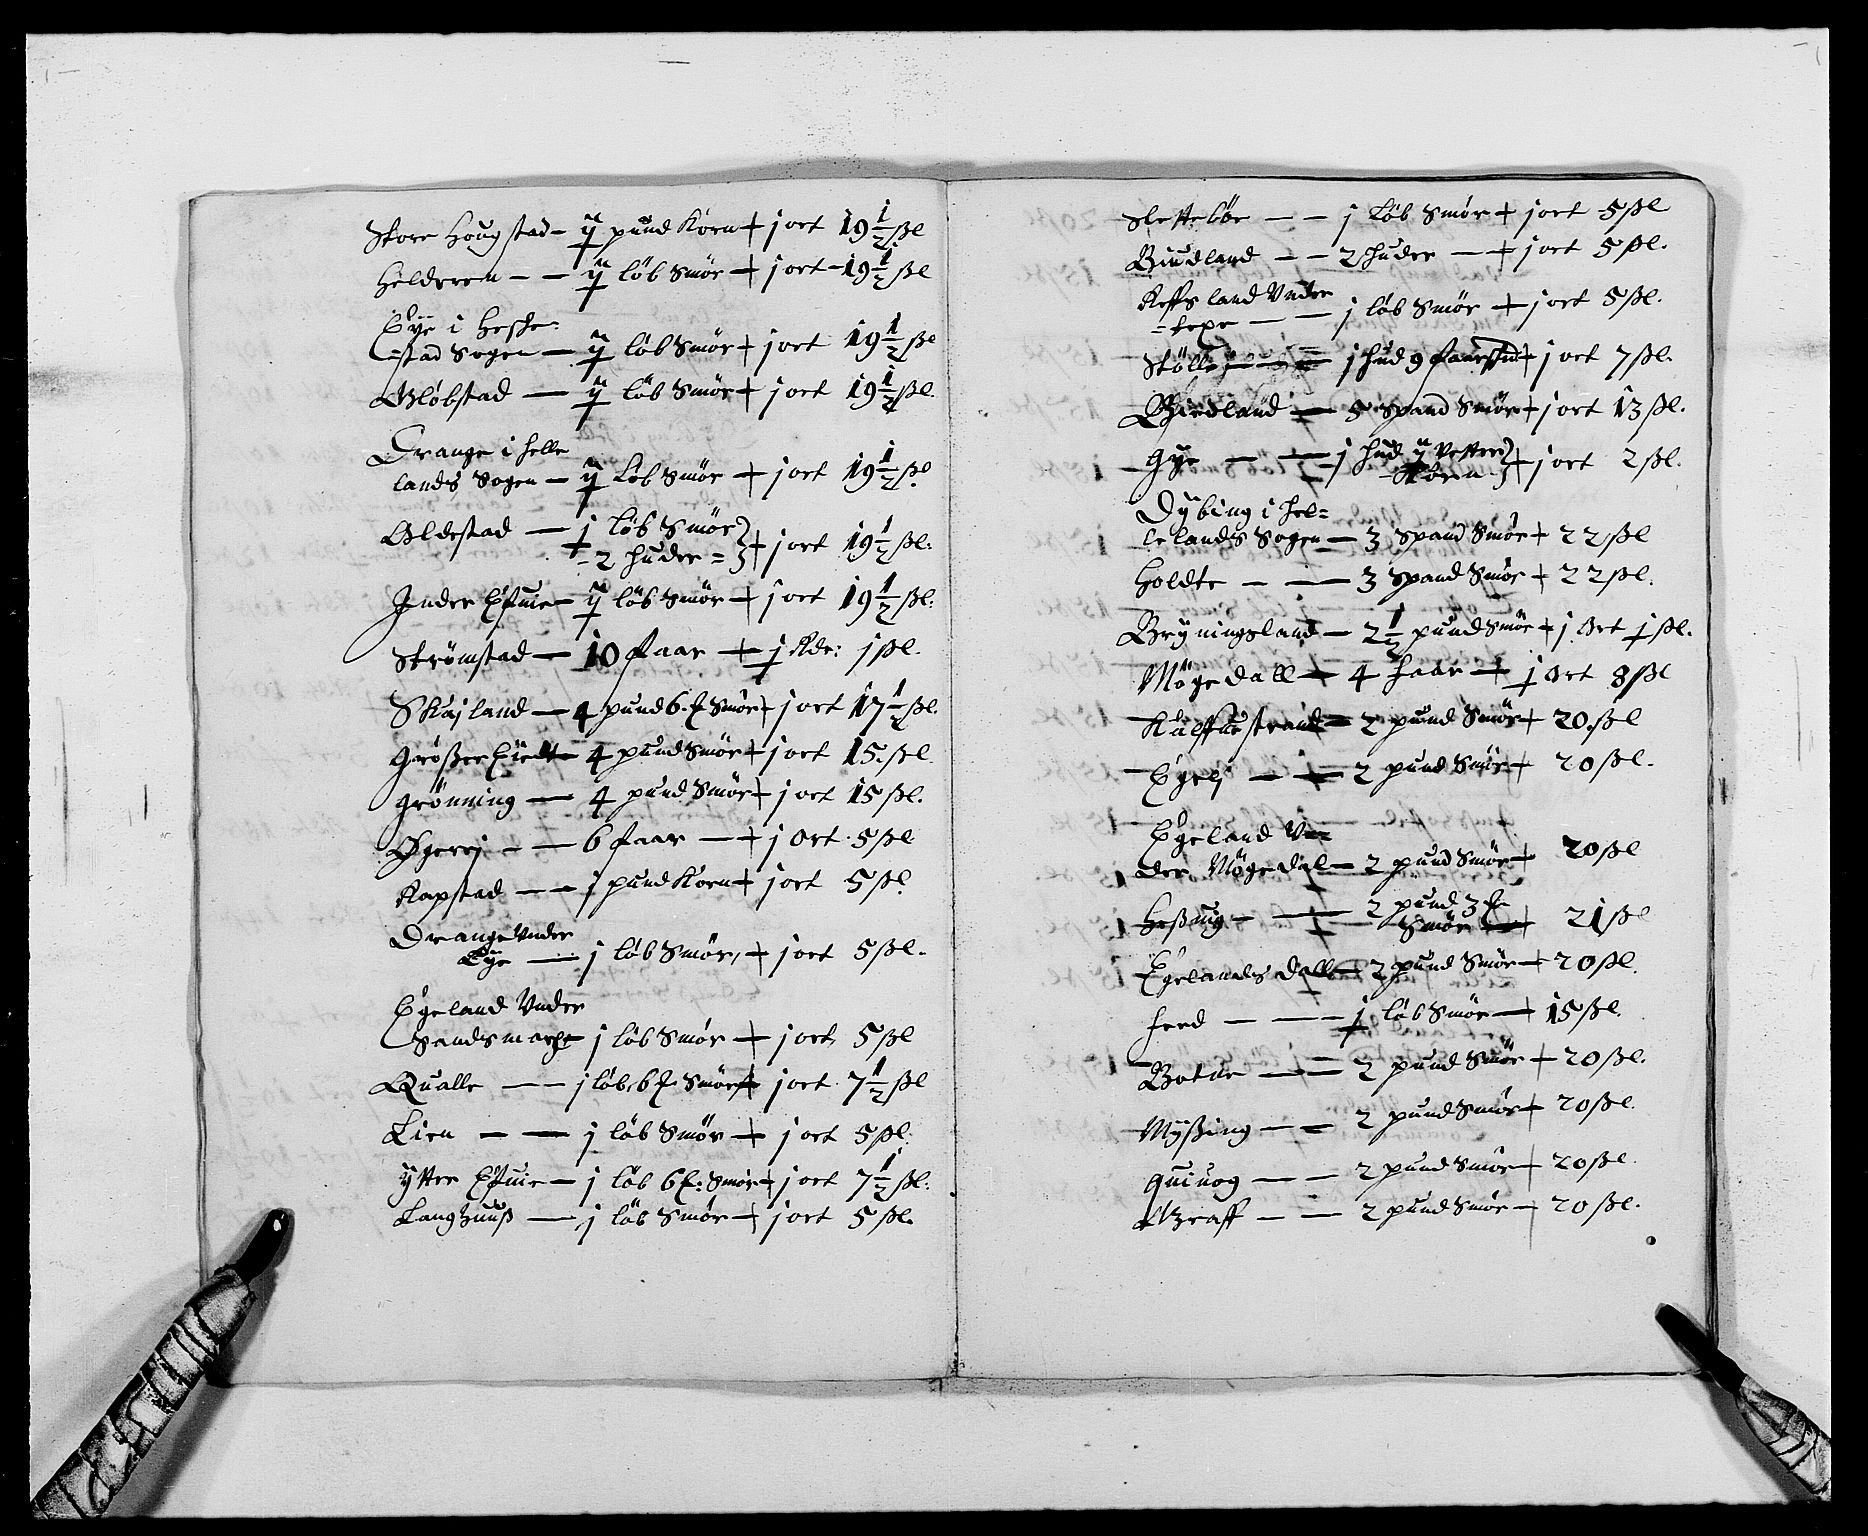 Store Hougstad – ij pund Korn + j ort 19 1/2 ßl
Helderen – – ij løb Smør + j ort – 19 1/2 ßl
Eye i Heske=
=stad Sogen – ij løb Smør + j ort 19 1/2 ßl
Gløbstad – ij løb Smør + j ort 19 1/2 ßl.
Drange i Helle
lands Sogen – ij Løb Smør + j ort 19 1/2 ßl
Oldestad – j løb Smør
– 2 huder = + j ort 19 1/2 ßl:
Inder Eftuie – ij løb Smør + j ort 19 1/2 ßl:
Strømstad – 10 faar + j Rdr: j ßl.
Skajland – 4 pund 6 # Smør + j ort 17 1/2 ßl.
Grøßer Eiedt – 4 pund Smør + j ort 15 ßl.
Grønning – 4 pund Smør + j ort 15 ßl.
Øgerej – – 6 faar – + j Ort 5 ßl
Rapstad – – j pund Korn + j ort 5 ßl.
Drange Vnder
Eye – j løb Smør, + j ort 5 ßl.
Egeland Vnder
Sandsmarhe j løb Smør + j ort 5 ßl
Qualle – – j løb, 6 # Smør + j ort 7 1/2 ßl
Lien – – j løb Smør + j ort 5 ßl:
Ytter Eftuie – j løb 6 #: Smør + j ort 7 1/2 ßl:
Langhuuß – j løb Smør + j ort 5 ßl.
Slettebøe – – j Løb Smør + j ort 5 ßl
Biudland – – 2 huder – + j ort 5 ßl.
Refsland Vnder
=texe – – j løb Smør + j ort 5 ßl.
j hud 9 faarskind + j ort 7 ßl.
Birdland – 5 Spand Smør + j ort 13 ßl.
Gye – – j hud ij Vetter
Korn + j ort 2 ßl.
Dybing i Hel=
lelands Sogen – 3 Spand Smør + 22 ßl
Holdte – – 3 Spand Smør + 22 ßl.
Bryningsland – 2 1/2 pund Smør + j Ort j ßl.
Møgedall – 4 Faar + j Ort 8 ßl
2 pund Smør + 20 ßl
Egelj – – 2 pund Smør + 20 ßl.
Egeland Vn=
der Møgedal – 2 pund Smør + 20 ßl
Heßuig – – 2 pund 3 #
Smør – 21 ßl
Egelandsdall – 2 pund Smør + 20 ßl.
Ferd – – – j løb Smør – 15 ßl.
Botne – – 2 pund Smør + 20 ßl.
Myßing – – 2 pund Smør + 20 ßl.
Quiuog – – 2 pund Smør + 20 ßl.
Graff – – 2 pund Smør – 20 ßl.